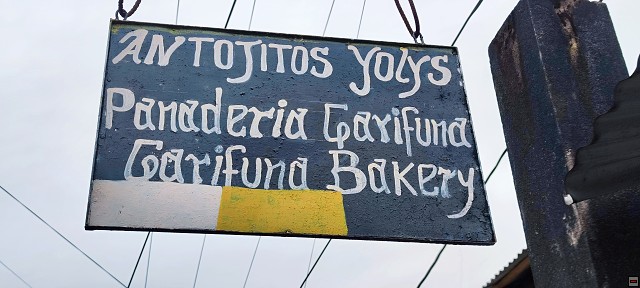 ANTOJITOS YOLYS
Panaderia Garifuna
Garifuna Bakery